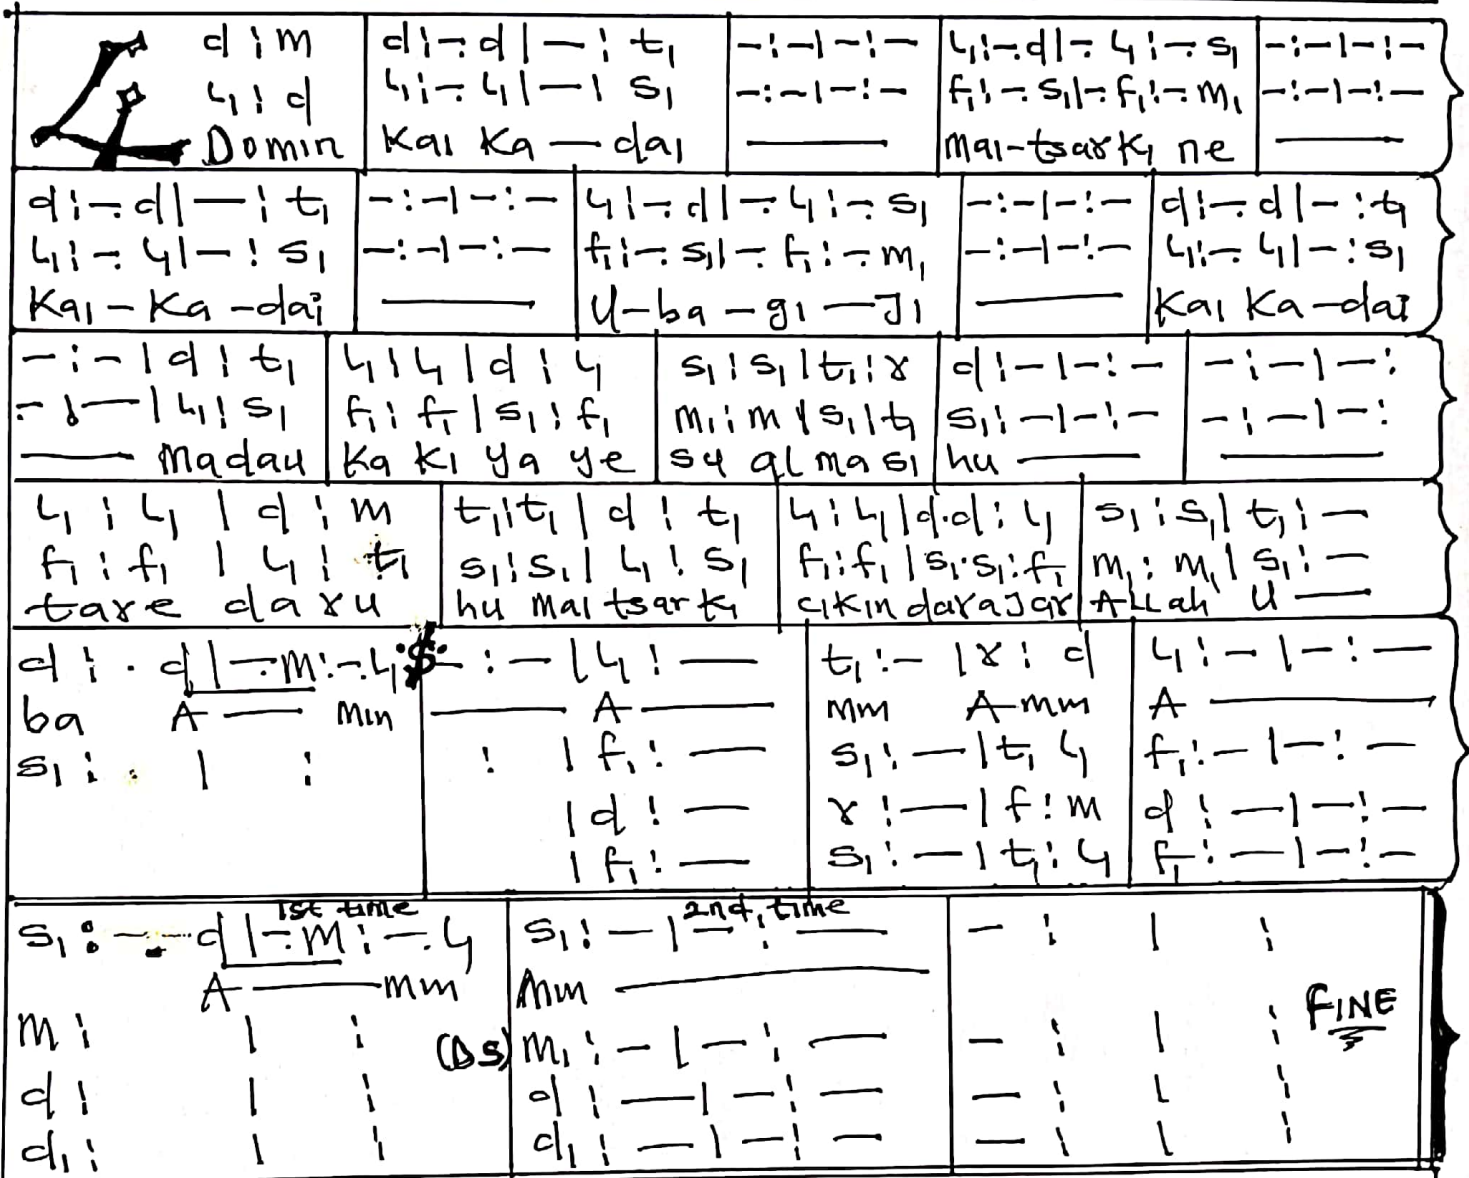 d : m | d : - . d | — : t₁ | - : - | - : - | l₁ : - . d | - . l₁ : - . s₁ | - : - | - : -
l₁ : d | l₁ : - . l₁ | — | s₁ | - : - | - : - | f₁ : - . s₁ | - . f₁ : - . m₁ | - : - | - : -
Domin | Kai Ka — dai | —— | Mai-tsarki ne | ——
d : - . d | — : t₁ | - : - | - : - | l₁ : - . d | - . l₁ : - . s₁ | - : - | - : - | d : - . d | - : t₁
l₁ : - . l₁ | - : s₁ | - : - | - : - | f₁ : - . s₁ | - . f₁ : - . m₁ | - : - | - : - | l₁ : - . l₁ | - : s₁
Kai - Ka - dai | —— | U - ba - gi — Ji | —— | Kai Ka - dai
- : - | d : t₁ | l₁ : l₁ | d : l₁ | s₁ : s₁ | t₁ : r | d : - | - : - | - : - | - :
- : — | l₁ : s₁ | f₁ : f₁ | s₁ : f₁ | m₁ : m₁ | s₁ : t₁ | s₁ : - | - : - | - : - | - :
—— Madau | Ka Ki ya ye | su al masi | hu —— | ——
l₁ : l₁ | d : m | t₁ : t₁ | d : t₁ | l₁ : l₁ | d . d : l₁ | s₁ : s₁ | t₁ : —
f₁ : f₁ | l₁ : t₁ | s₁ : s₁ | l₁ : s₁ | f₁ : f₁ | s₁ . s₁ : f₁ | m₁ : m₁ | s₁ : —
tare da ru | hu mai tsarki | cikin darajar | Allah U —
d : . d | - . m : - . l₁ 𝄋 | - : - | l₁ : — | t₁ : - | r : d | l₁ : - | - : —
ba A — Min | —— A —— | mm A-mm | A ——
s₁ : . | : | : | f₁ : — | s₁ : — | t₁ l₁ | f₁ : - | - : -
| d : — | r : — | f : m | d : — | - : -
| f₁ : — | s₁ : — | t₁ : l₁ | f₁ : — | - : -
1st time 2nd, time
s₁ : - . d | - . m : - . l₁ | s₁ : - | - : — | - : | :
A —— mm | Amm ——
FINE
m : | : (DS) | m₁ : - | - : — | - : | :
d : | : | d : — | - : - | - : | :
d₁ : | : | d₁ : — | - : - | - : | :